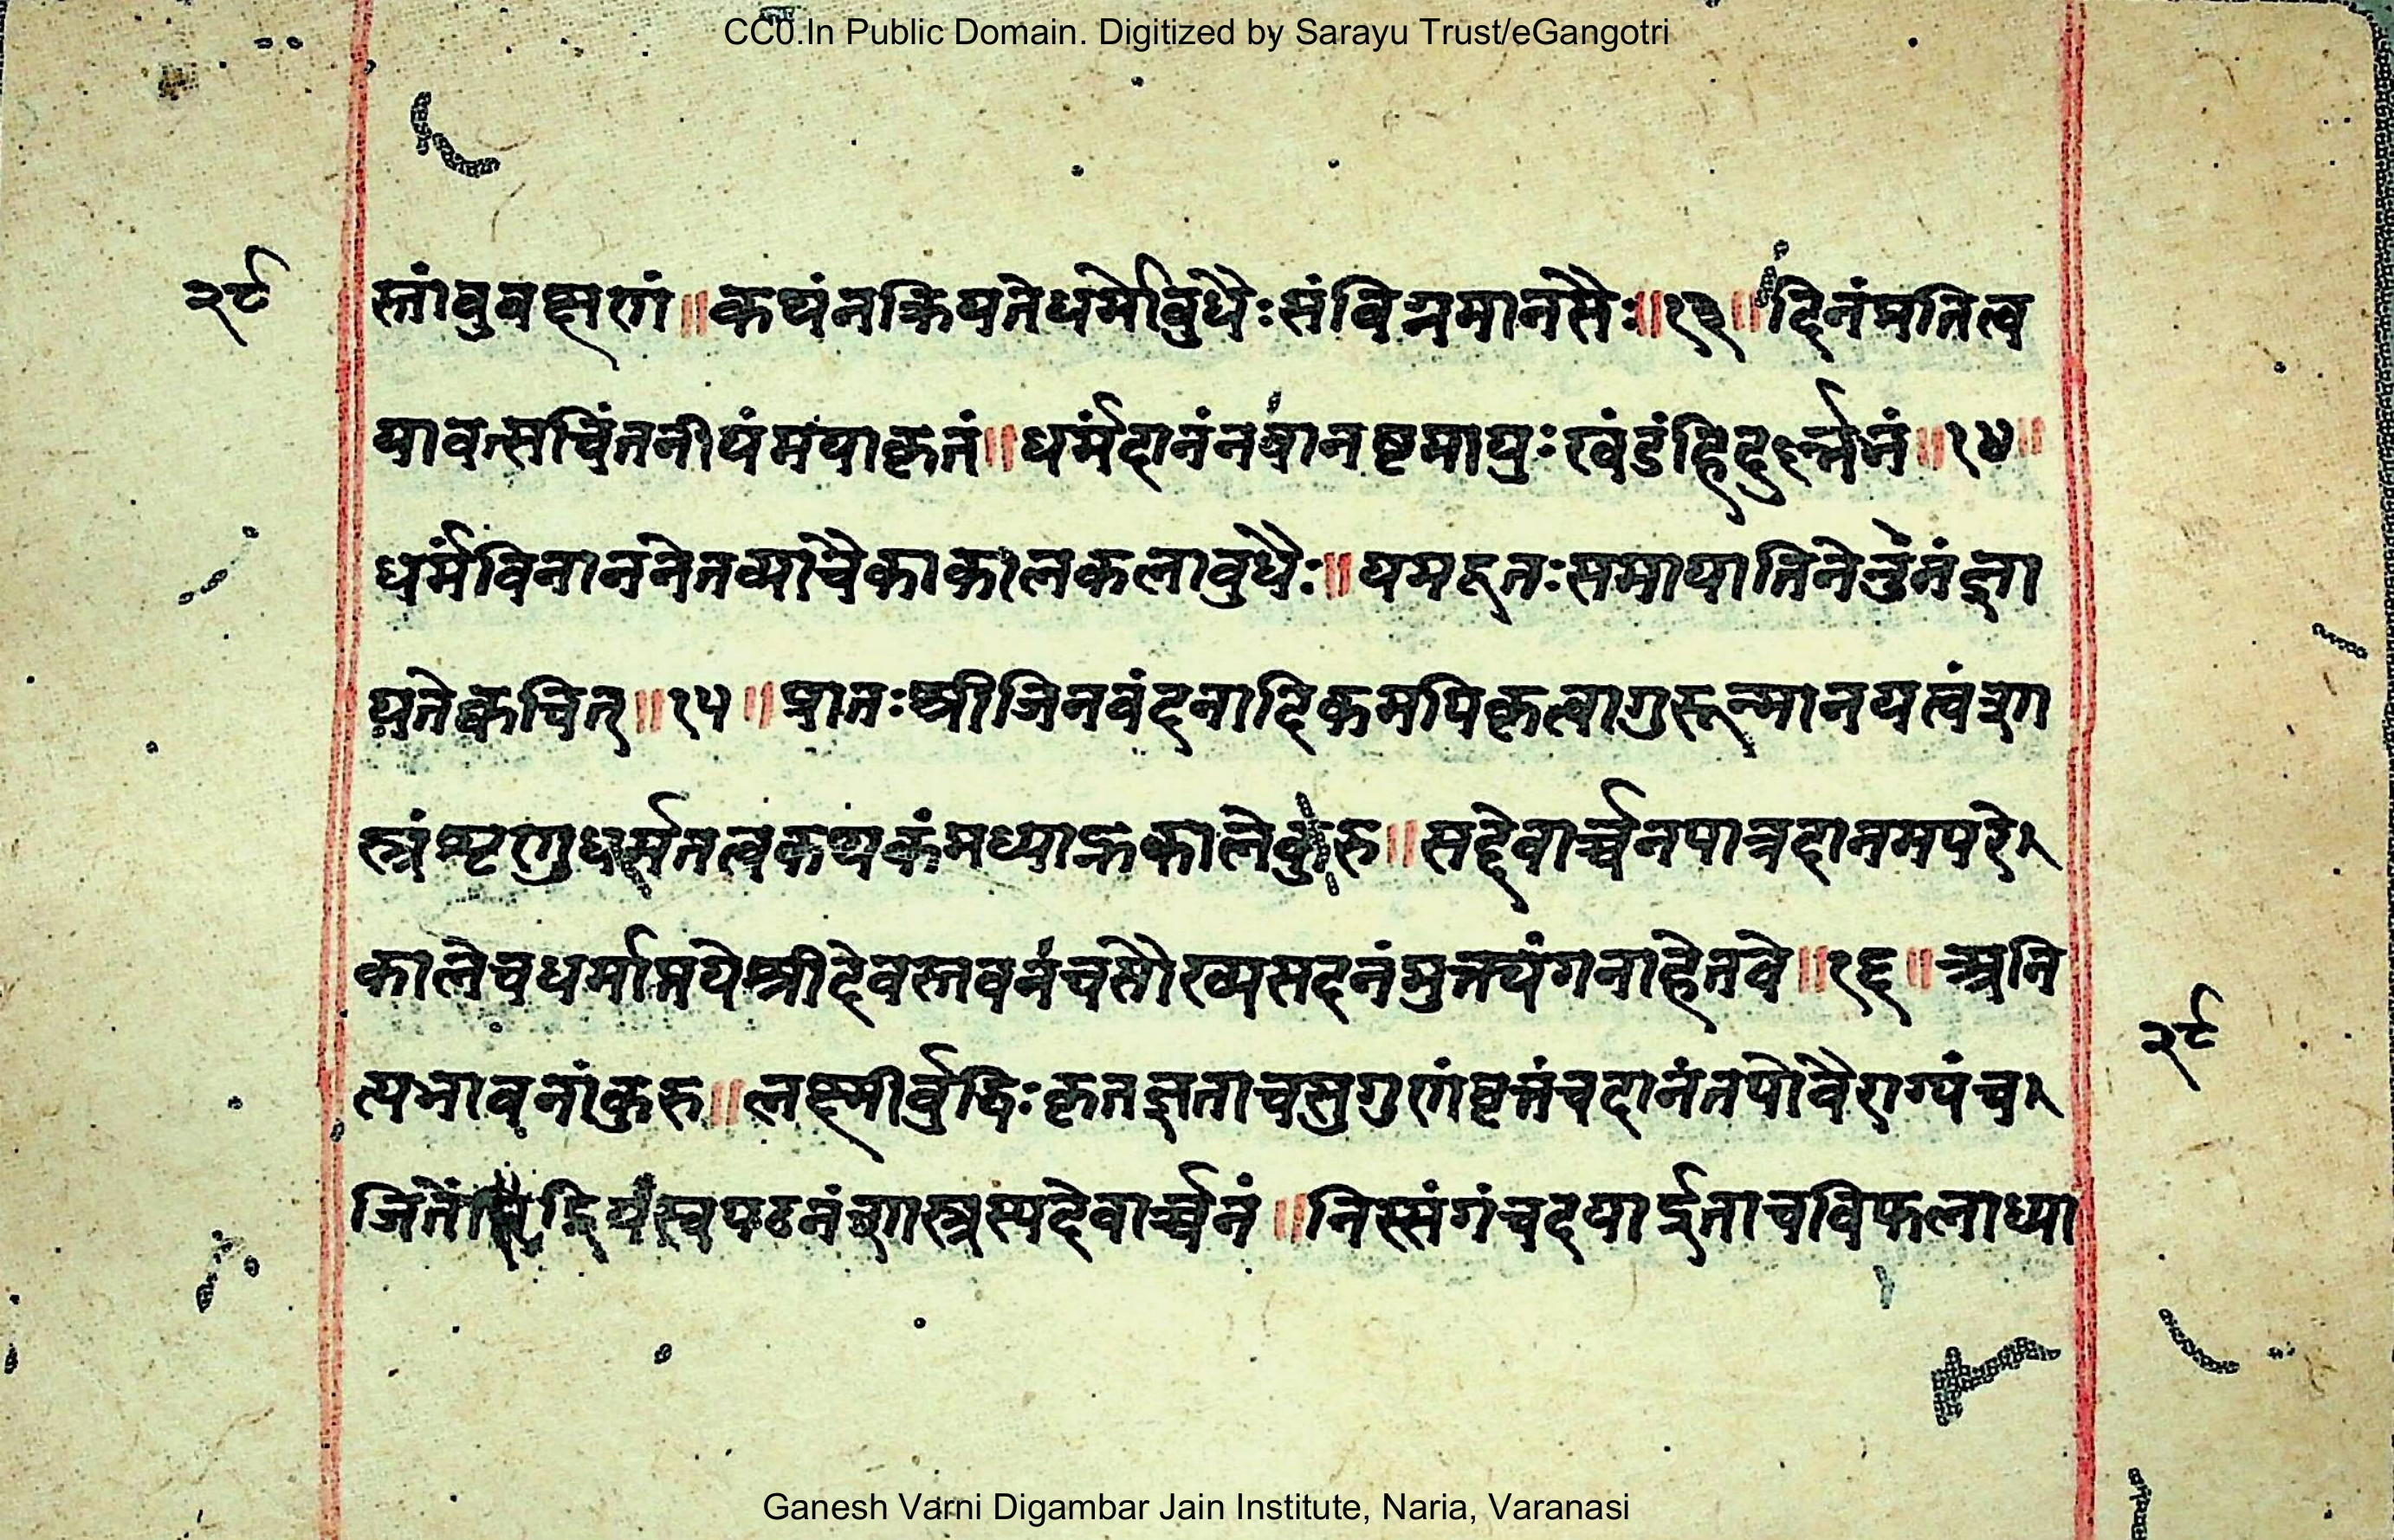 CC0.In Public Domain. Digitized by Sarayu Trust/eGangotri
२९
स्तांवुवक्षणं॥कथंनक्रियतेधर्मोवुधैःसंविग्नमानसैः॥१३॥दिनंप्रतित्व
यावत्सचिंतनीयंमयाकृतं॥धर्मंदानंनवानष्टमायुःखंडंहिदुर्ल्लभं॥१४॥
धर्मंविनाननेतव्याचैकाकालकलावुधैः॥यमदूतःसमायातिनेतुंनंज्ञा
यतेक्वचित्॥१५॥प्रातःश्रीजिनवंदनादिकमपिकृत्वागुरून्मानयत्वंशा
स्त्रंशृणुधर्मतत्वकथकंमध्याह्नकालेकुरु॥सद्देवार्च्चनपात्रदानमपरे
कालेचधर्माप्तयेश्रीदेवस्तवनंचसौख्यसदनंमुक्त्यंगनाहेतवे॥१६॥अनि
त्यभावनांकुरु॥लक्ष्मीर्वुद्धिःकृतज्ञताचसुगुणंवृत्तंचदानंतपोवैराग्यंच
जितेंद्रियंस्वपठनंशास्त्रस्यदेवार्च्चनं॥निस्संगंचदयार्द्रताचविफलाध्या
२९
Ganesh Varni Digambar Jain Institute, Naria, Varanasi